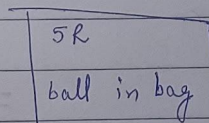 5R
ball in bag